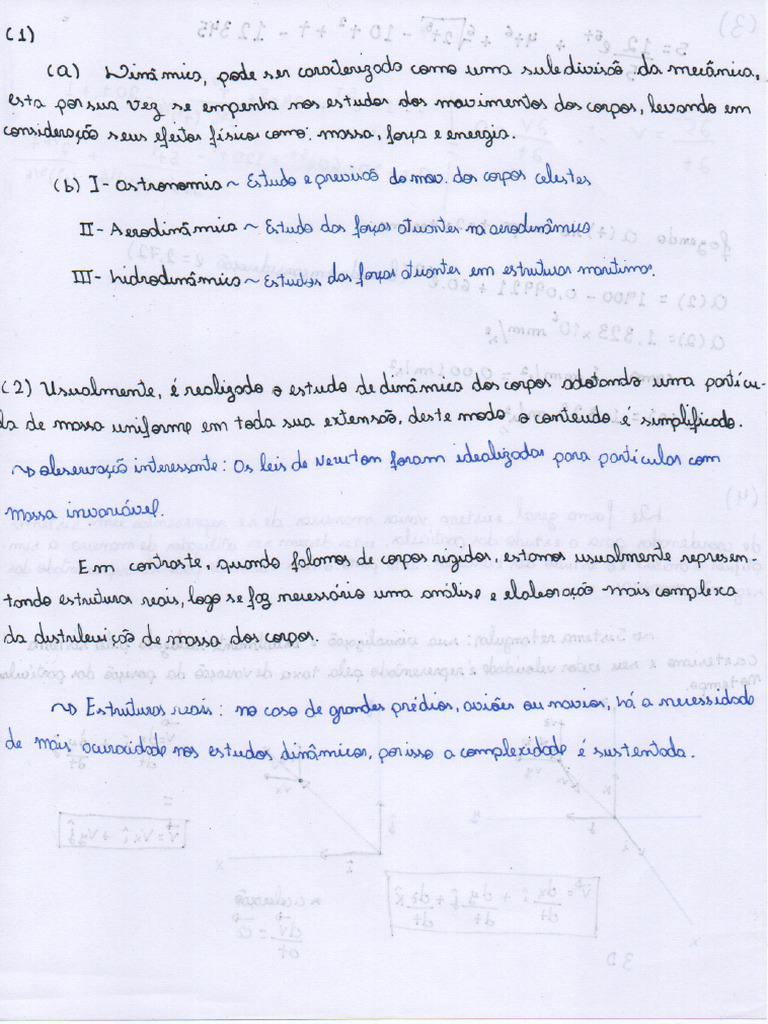 (1)
(a) Dinâmica, pode ser caracterizada como uma subdivisão da mecânica,
esta por sua vez se empenha nos estudos dos movimentos dos corpos, levando em
consideração seus efeitos físicos como: massa, força e energia.
(b) I - astronomia ~ Estudo e previsão do mov. dos corpos celestes
II - Aerodinâmica ~ Estudo das forças atuantes na aerodinâmica
III - hidrodinâmica ~ Estudos das forças atuantes em estruturas maritimas.
(2) Usualmente, é realizado o estudo de dinâmica dos corpos adotando uma partícu-
la de massa uniforme em toda sua extensão, deste modo o conteudo é simplificado.
~> observação interessante: As leis de Newton foram idealizadas para partículas com
massa invariável.
Em contraste, quando falamos de corpos rigidos, estamos usualmente represen-
tando estruturas reais, logo se faz necessário uma análise e elaboração mais complexa
da distribuição de massa dos corpos.
~> Estruturas reais: no caso de grandes prédios, aviões ou navios, há a necessidade
de mais acuracidade nos estudos dinâmicos, por isso a complexidade é sustentada.